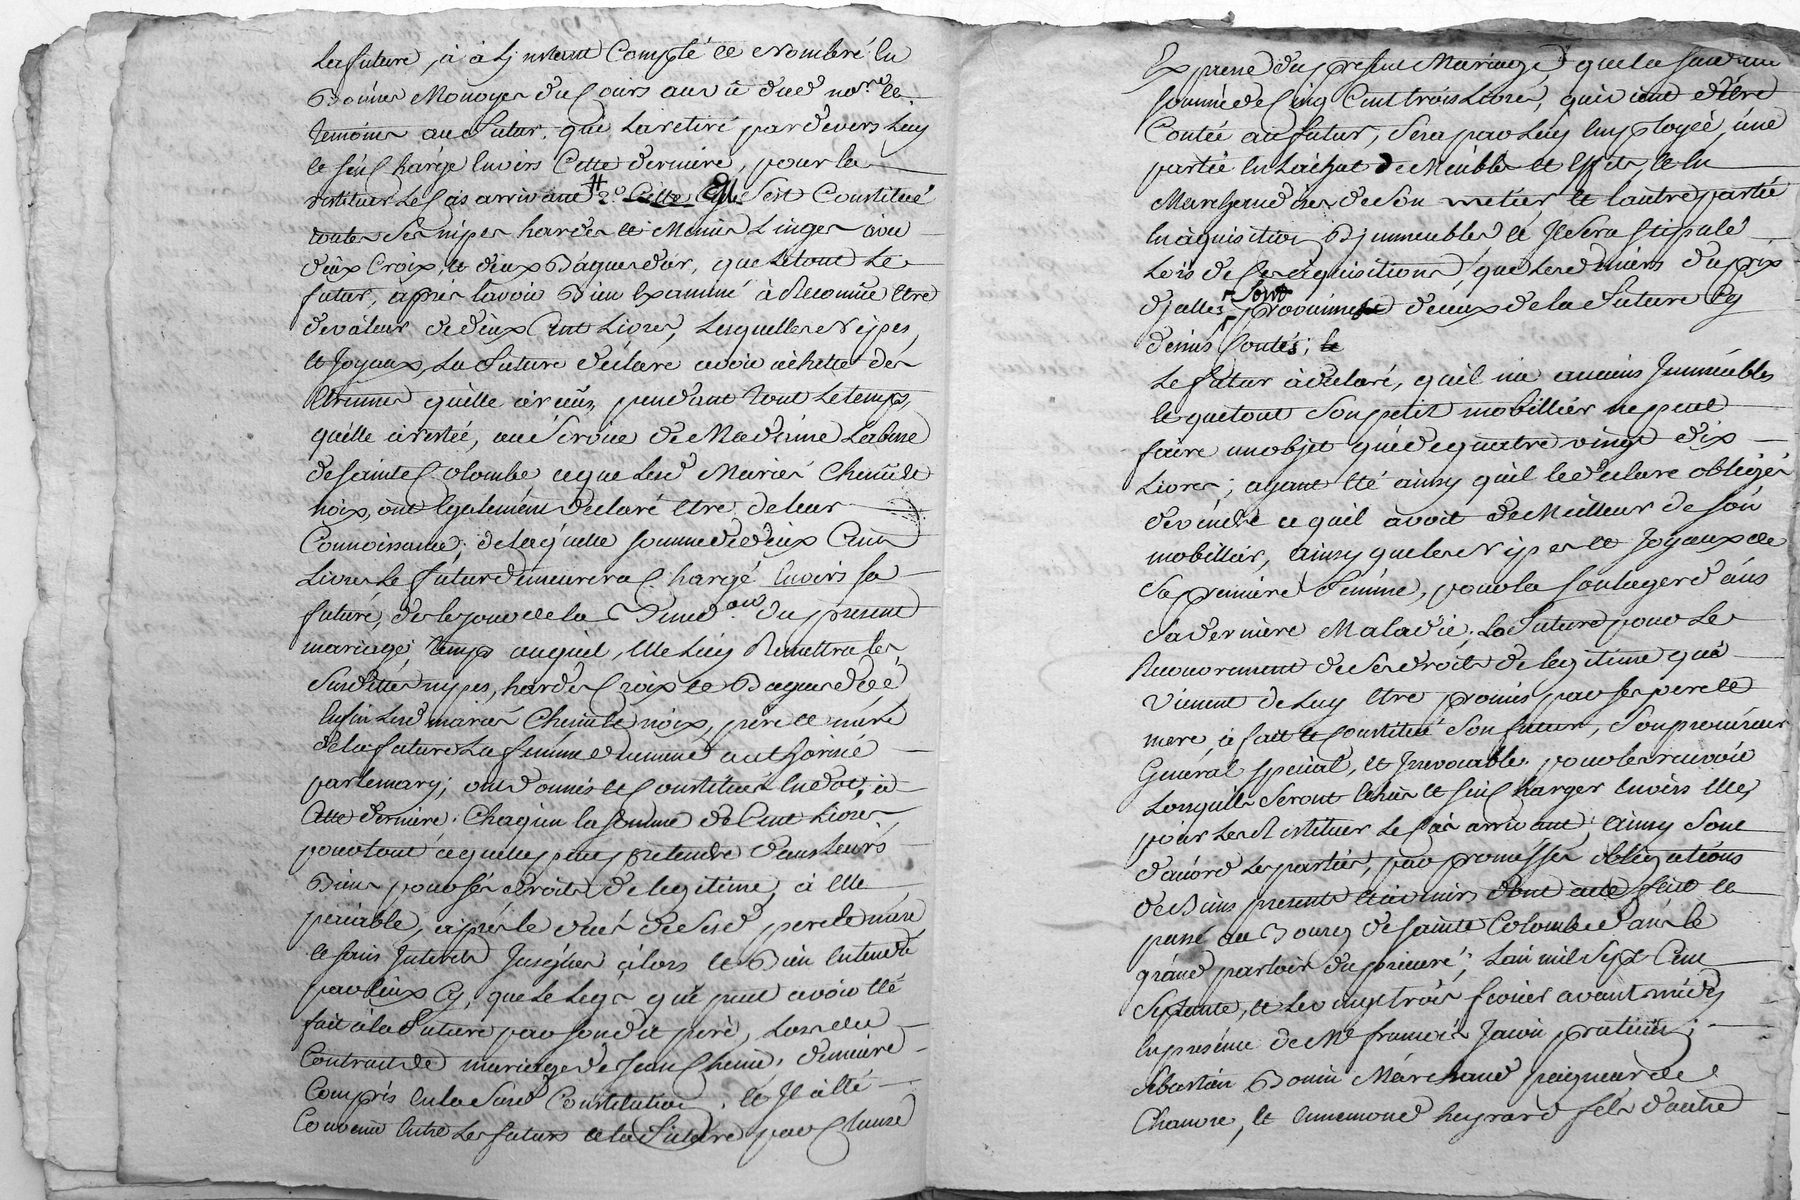 La future, a à L'jnstant Compté et Nombré en
Bonnes Monoyes du Cours au vû dud. no.re et
temoins au futur, qui La retiré pardevers Luy
et s'en Charge Envers Cette derniere, pour la
restituer Le Cas arrivant # 2.° Cette Elle Sest Constitué
toutes Ses nipes hardes et Menus Linges avec
deux Croix, et deux Bagues d'or, que Le tout Le
futur, après lavoir Bien Examiné à Reconnu Etre
de valeur de deux Cent Livres, Lesquelles Nipes,
et Joyaux, La future déclare avoir achetté des
Etrennes quelle à reçu, pendant tout Le temps,
quelle à restée, au Service de Madame
de Sainte Colombe ce que Lesd. Mariés Chemin et
noix, ont Egalement declaré Etre de leur
Connoissance; de laquelle somme de deux Cent
Livres Le futur demeurera Chargé Envers sa
future, dès le jour de la du present
mariage, temps auquel, Elle Luy Remettra les
Susdittes nipes, hardes, Croix et Bagues d'or
Enfin Lesd. mariés Chemin et noix, pere et mère
de la future La femme düement authorisée
par le mary; ont donnés et Constitués En dot, à
Cette derniere, Chaqun la somme de Cent Livres,
pour tout ce quelle peut pretendre dans Leurs
Biens pour Ses droits de legitime, à Elle
paiable, après le décès de Sesd. pere et mère
et sans Interets Jusques àlors et Bien Entendu
par Eux Cy, que Le Legs qui peut avoir Eté
fait à la future par son dit pere, Lors du
Contrat de mariage de Jean Chemin, demeure
Compris En la Susd. Constitution, et Il à Eté
Convenu Entre Les futurs et la future par Clause
Expresse du present Mariage, que la susd.
somme de Cinq Cent trois Livres, qui vient d'être
Contée au futur, Sera par Luy Employée, une
partie En L'achat de Meubles et Effets, et En
Marchandises de Son metier et l'autre partie
En aquisition D'jmmeubles et Il Sera Stipulé
Lors de Ses aquisitions, que Les deniers du prix
d'jcelles, Sont provenus de ceux de la future Cy
dessus Contés; et
Le futur à declaré, quil na aucuns Jmmeubles
et que tout Son petit mobillier ne peut
faire un objet que de quatre vingt dix
Livres; ayant Eté ainsy quil le declare obligés
de vendre ce quil avoit de Meilleur de son
mobillier, ainsy que les Nipes et Joyaux de
Sa premiere femme, pour la soulager dans
Sa derniere Maladie, La future pour Le
Recouvrement de Ses droits de legitime qui
Viennent de Luy Etre promis par ses pere et
mere, à fait et Constitué Son futur, Son procureur
General special, et Jrrevocable, pour les recevoir
Lesquels Seront tenus et s'en Charger Envers Elle,
pour Les Restituer Le Cas arrivant; ainsy Sont
d'acord Les parties, par promesses obligations
de Biens presents et avenirs dont acte fait et
passé au Bourg de Sainte Colombe dans le
grand parloir du prieuré, Lan mil Sept Cent
Septante, et Le vingt trois fevrier avant midy
En présence de M.e francois Javin praticien;
Sebastien Bonin Marchand peigneur de
Chanvre, et Ennemond heyrard fils d'autre